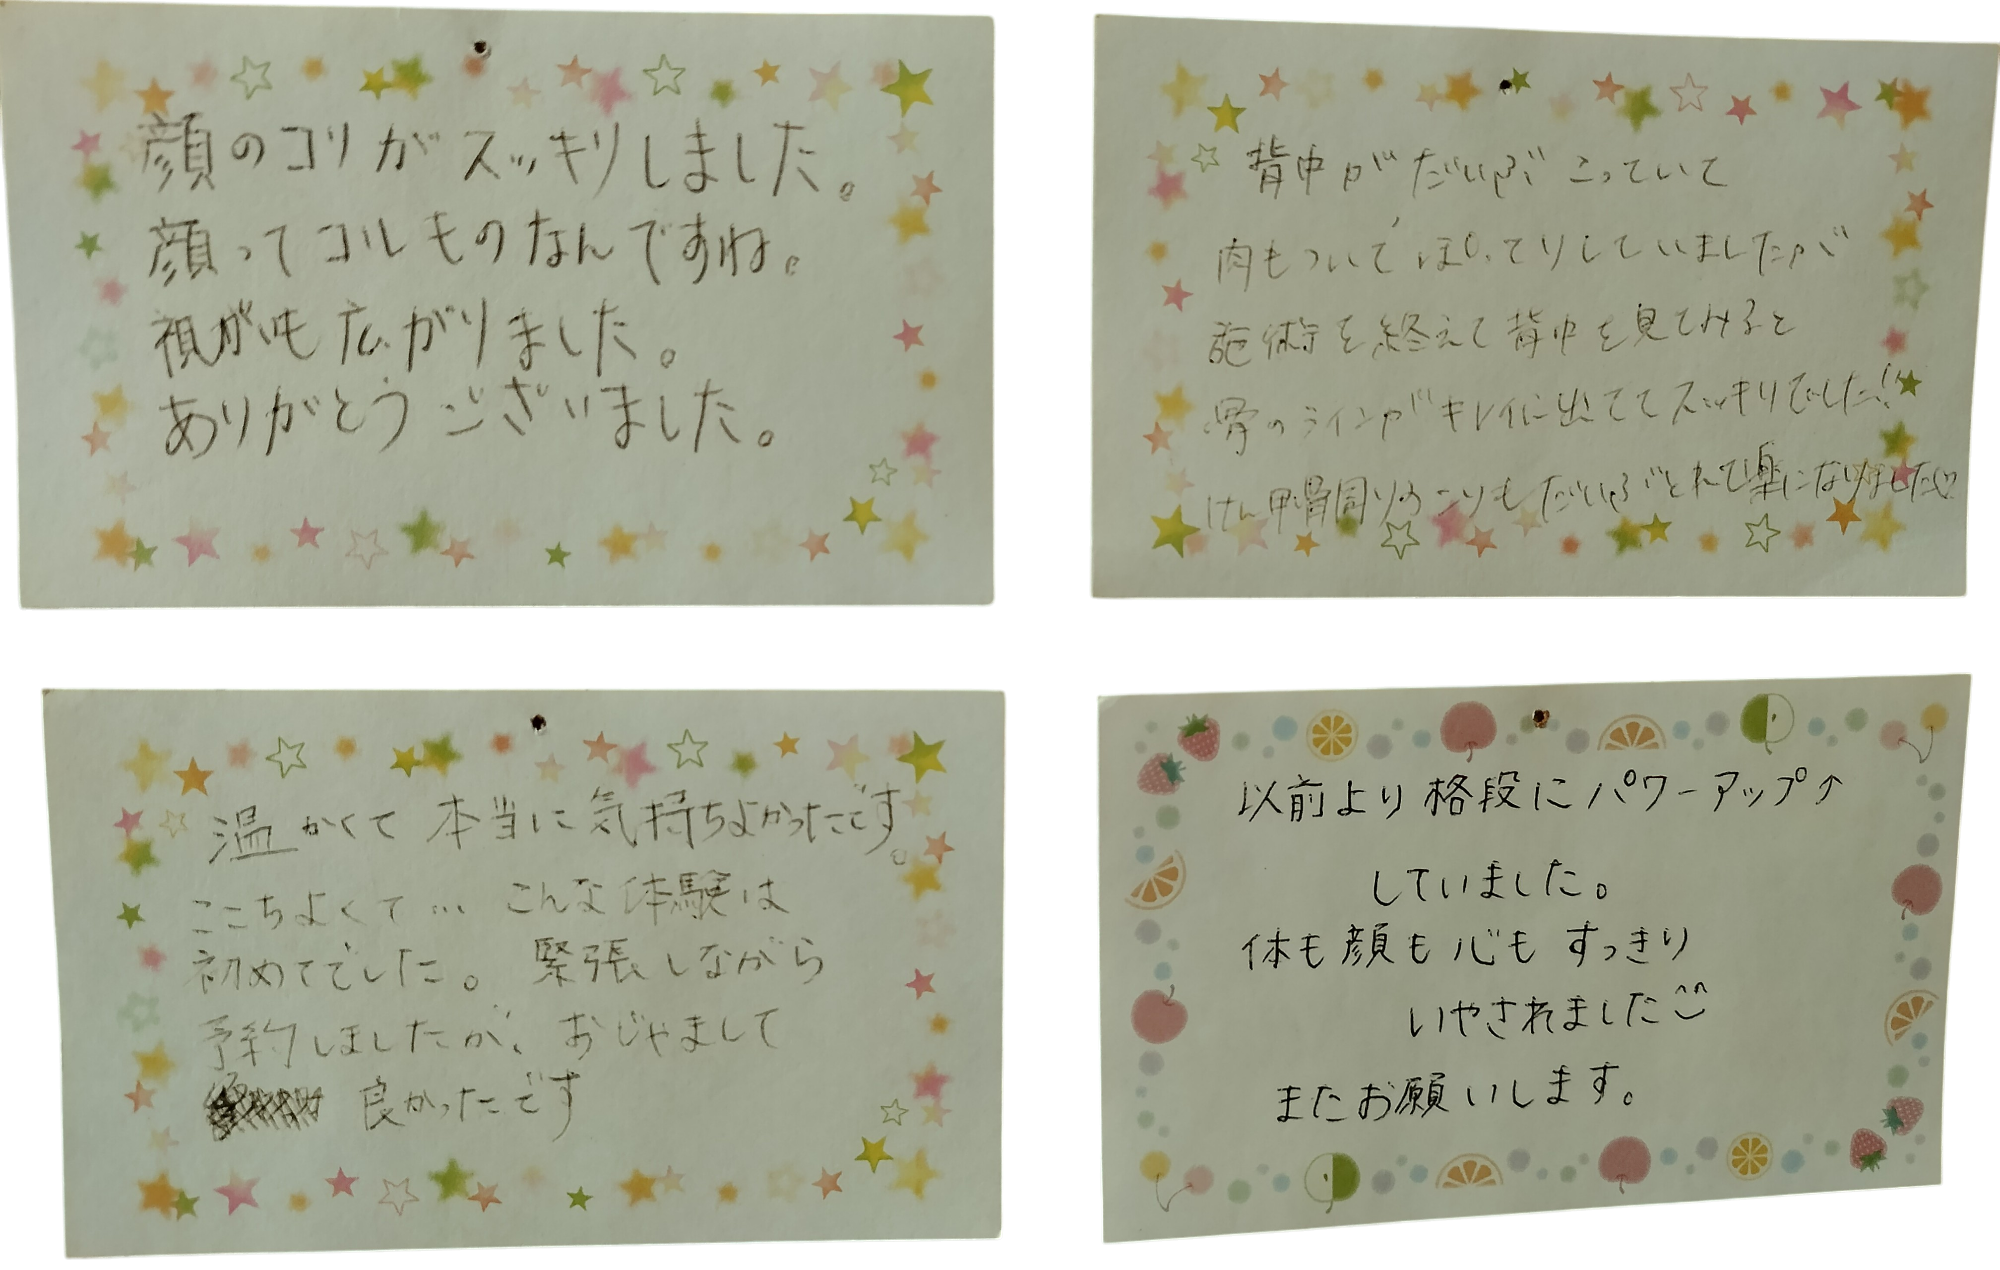 顔のコリがスッキリしました。
顔ってコルものなんですね。
視がいも広がりました。
ありがとうございました。
背中がだいぶこっていて
肉もついて、ぽってりしていましたが
施術を終えて背中を見てみると
骨のラインがキレイに出ててスッキリでした!!
けん甲骨周りのこりもだいぶとれて楽になりました♡
温かくて本当に気持ちよかったです。
ここちよくて… こんな体験は
初めてでした。緊張しながら
予約しましたが、おじゃまして
良かったです
以前より格段にパワーアップ↑
していました。
体も顔も心もすっきり
いやされました^^
またお願いします。